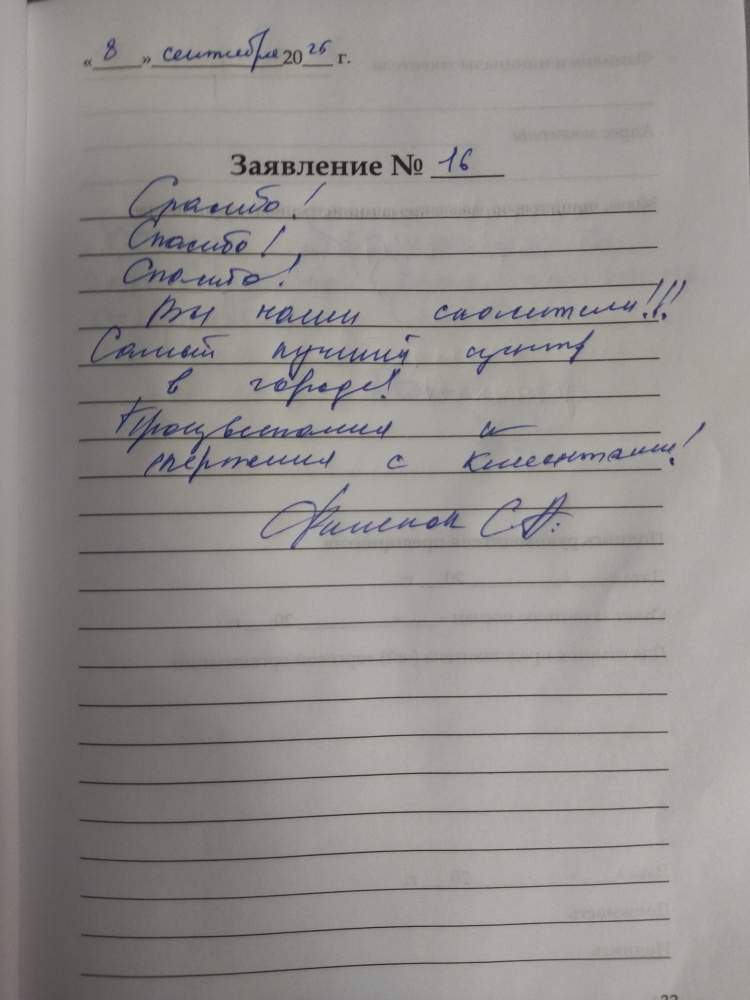 « 8 » сентября 2025 г.
Заявление № 16
Спасибо!
Спасибо!
Спасибо!
Вы наши спасители!!!
Самый лучший центр
в городе!
Процветания и
терпения с клиентами!
С.А.